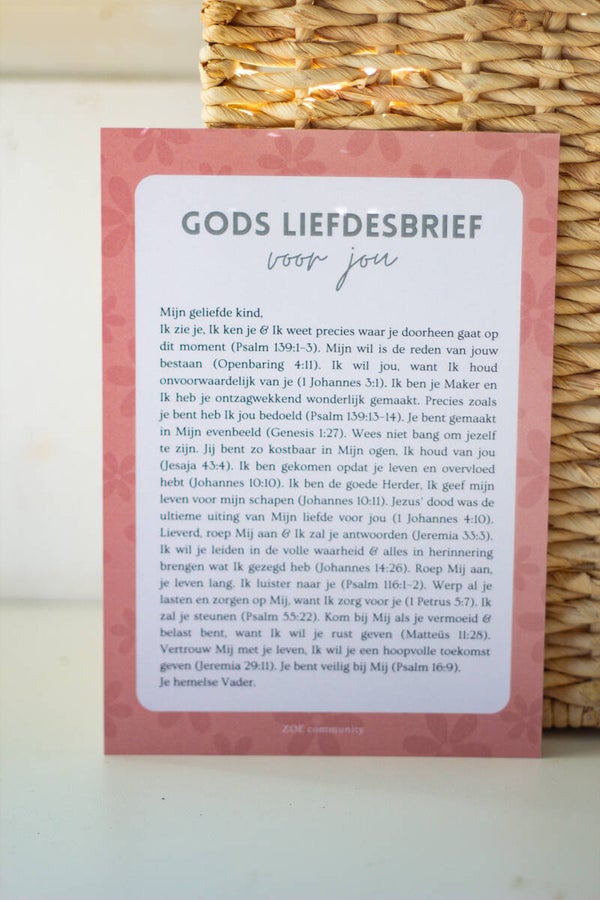 GODS LIEFDESBRIEF
voor jou
Mijn geliefde kind,
Ik zie je, Ik ken je & Ik weet precies waar je doorheen gaat op
dit moment (Psalm 139:1-3). Mijn wil is de reden van jouw
bestaan (Openbaring 4:11). Ik wil jou, want Ik houd
onvoorwaardelijk van je (1 Johannes 3:1). Ik ben je Maker en
Ik heb je ontzagwekkend wonderlijk gemaakt. Precies zoals
je bent heb Ik jou bedoeld (Psalm 139:13-14). Je bent gemaakt
in Mijn evenbeeld (Genesis 1:27). Wees niet bang om jezelf
te zijn. Jij bent zo kostbaar in Mijn ogen, Ik houd van jou
(Jesaja 43:4). Ik ben gekomen opdat je leven en overvloed
hebt (Johannes 10:10). Ik ben de goede Herder, Ik geef mijn
leven voor mijn schapen (Johannes 10:11). Jezus' dood was de
ultieme uiting van Mijn liefde voor jou (1 Johannes 4:10).
Lieverd, roep Mij aan & Ik zal je antwoorden (Jeremia 33:3).
Ik wil je leiden in de volle waarheid & alles in herinnering
brengen wat Ik gezegd heb (Johannes 14:26). Roep Mij aan,
je leven lang. Ik luister naar je (Psalm 116:1-2). Werp al je
lasten en zorgen op Mij, want Ik zorg voor je (1 Petrus 5:7). Ik
zal je steunen (Psalm 55:22). Kom bij Mij als je vermoeid &
belast bent, want Ik wil je rust geven (Matteüs 11:28).
Vertrouw Mij met je leven, Ik wil je een hoopvolle toekomst
geven (Jeremia 29:11). Je bent veilig bij Mij (Psalm 16:9).
Je hemelse Vader.
ZOE community